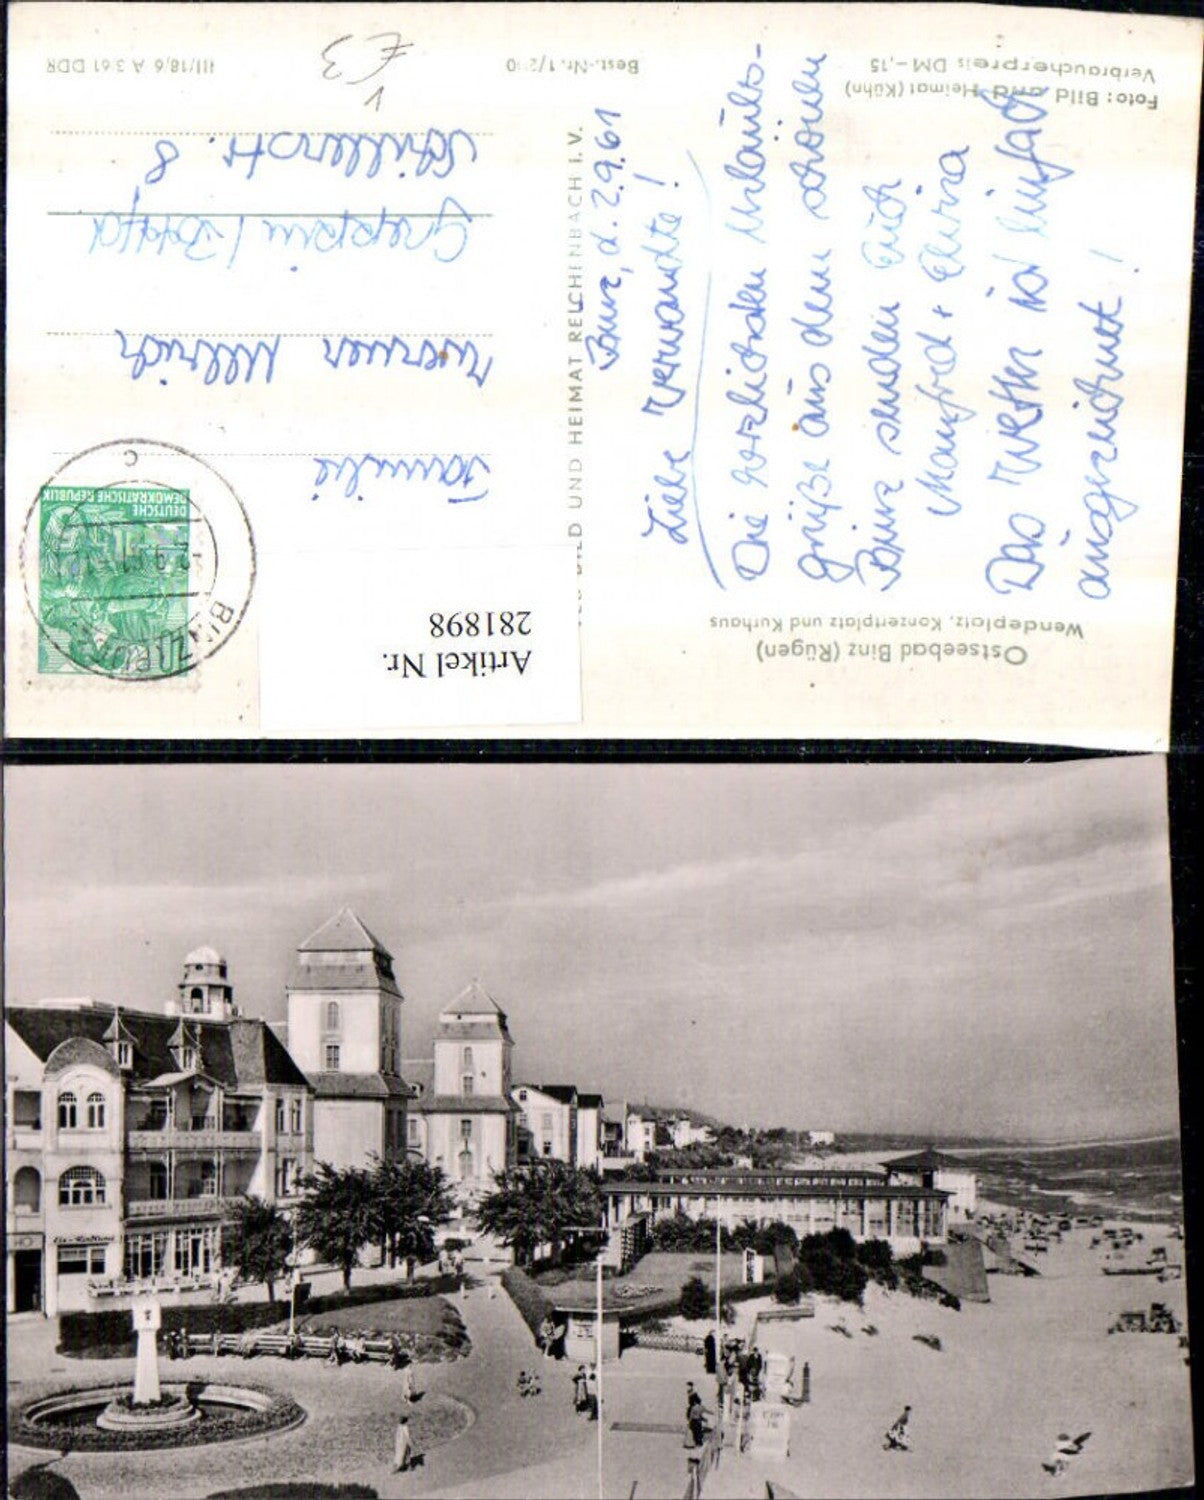 Ostseebad Binz (Rügen)
Wendeplatz, Konzertplatz und Kurhaus
Binz, d. 2.9.61
Liebe Verwandte!
Die herzlichsten Urlaubs-
grüße aus dem schönen
Binz senden Euch
Manfred + Elvira
Das Wetter ist einfach
ausgezeichnet!
Foto: Bild und Heimat (Kühn)
Verbraucherpreis DM -,15
BILD UND HEIMAT REICHENBACH I. V.
Artikel Nr.
281898
DEUTSCHE
DEMOKRATISCHE REPUBLIK
BINZ
C
Familie
Werner Ullrich
Greppin /
Schillerstr. 8
Best.-Nr. 1/
III/18/6 A 361 DDR